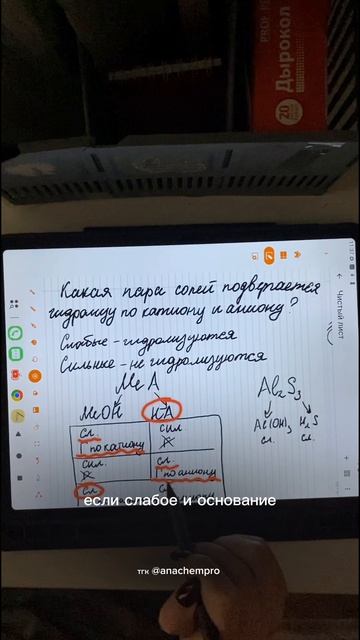 PROF
Дырокол
20
11:37
← Чистый лист
Какая пара солей подвергается
гидролизу по катиону и аниону?
Слабые - гидролизуются
Сильные - не гидролизуются
MeA
MeOH HA
Al₂S₃
Al(OH)₃ H₂S
сл. сл.
сл. сил
Г по катиону
сил. сл.
Г по аниону
сл
если слабое и основание
тгк @anachempro